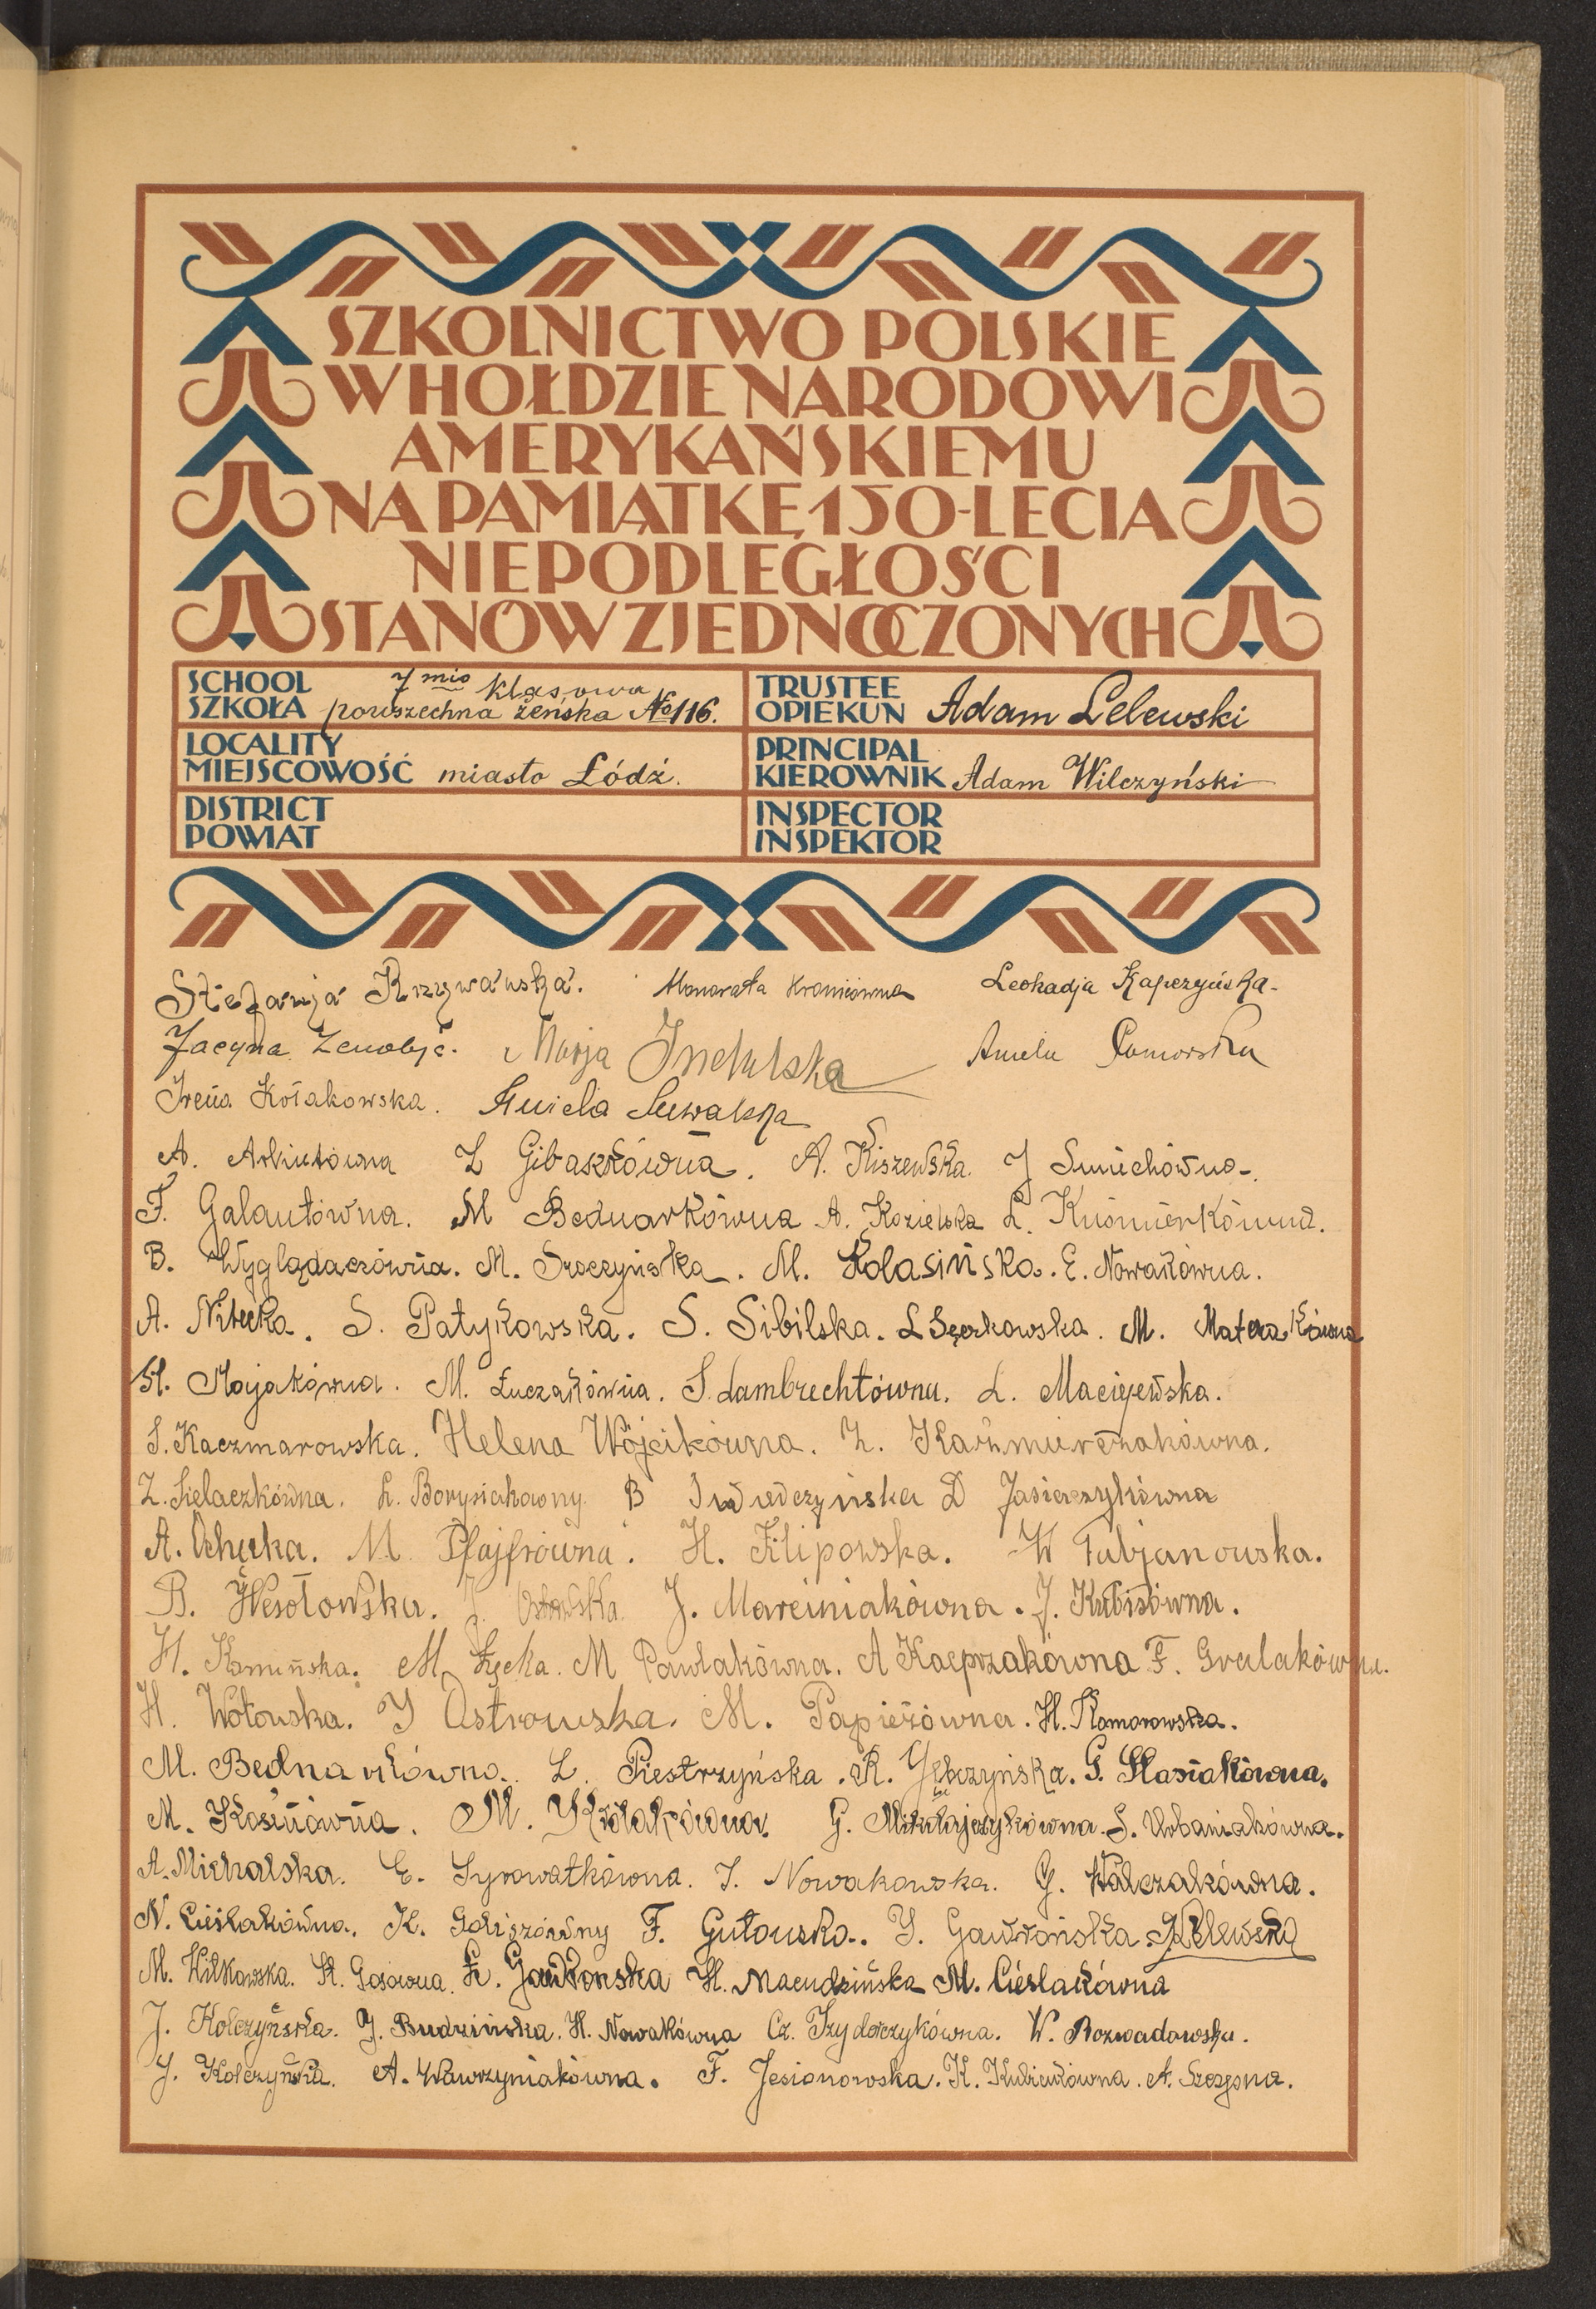 SZKOLNICTWO POLSKIE
W HOŁDZIE NARODOWI
AMERYKAŃSKIEMU
NA PAMIĄTKĘ 150-LECIA
NIEPODLEGŁOŚCI
STANÓW ZJEDNOCZONYCH
SCHOOL
SZKOŁA
7 mio klasowa
powszechna żeńska № 116.
TRUSTEE
OPIEKUN Adam Lelewski
LOCALITY
MIEJSCOWOŚĆ miasto Łódź.
PRINCIPAL
KIEROWNIK Adam Wilczyński
DISTRICT
POWIAT
INSPECTOR
INSPEKTOR
Stefanja Leokadja Kapczyńska.
Jacyna Zenobja. Marja Aniela Pomorska
Irena Kołakowska. Aniela Suwalska
A. Z Gibaszkówna. A. Kiszewska. J Smiechówna.
F. Galantówna. M Bednarkówna A. Kozielska L. Kuśmierkówna.
B. Wyglądaczówna. M. Sroczyńska. M. Kolasińska. E. Nowakówna.
A. Nitecka. S. Patykowska. S. Sibilska. L Sęczkowska. M. Materakówna
M. Łuczakówna. S. Lambrechtówna. L. Maciejewska.
S. Kaczmarowska. Helena Wójcikówna. Z. Kaźmierczakówna.
Z. Sielaczkówna. L. Borysiakówny B D Jasieczykówna
A. M. Pfajfrówna. H. Filipowska. W Fabjanowska.
B. Wesołowska. J. J. Marciniakówna. J. Kubisówna.
H. Kamińska. M. Łęcka. M Pawlakówna. A Kacprzakówna F. Gralakówna.
H. Wołowska. Y Ostrowska. M. Papieżówna. H. Komorowska.
M. Bednarkówna. L. Piestrzyńska. R. G. Stasiakówna.
M. Kosinówna. M. Królakówna. G. Mikołajczykówna. S. Urbaniakówna.
A. Michalska. E. Syrowatkówna. J. Nowakowska. G. Walczakówna.
N. Cieślakówna. F. Gutowska. Y. Gawrońska.
M. Witkowska. St. Gosowna. Z. Gawrońska H. Macudzińska M. Cieślakówna
J. Kolczyńska. J. Budzińska. H. Nowakówna Cz. Izydorczykówna. W. Rozwadowska.
J. Kolczyńska. A. Wawrzyniakówna. F. Jesionowska. K. A. Szczęsna.